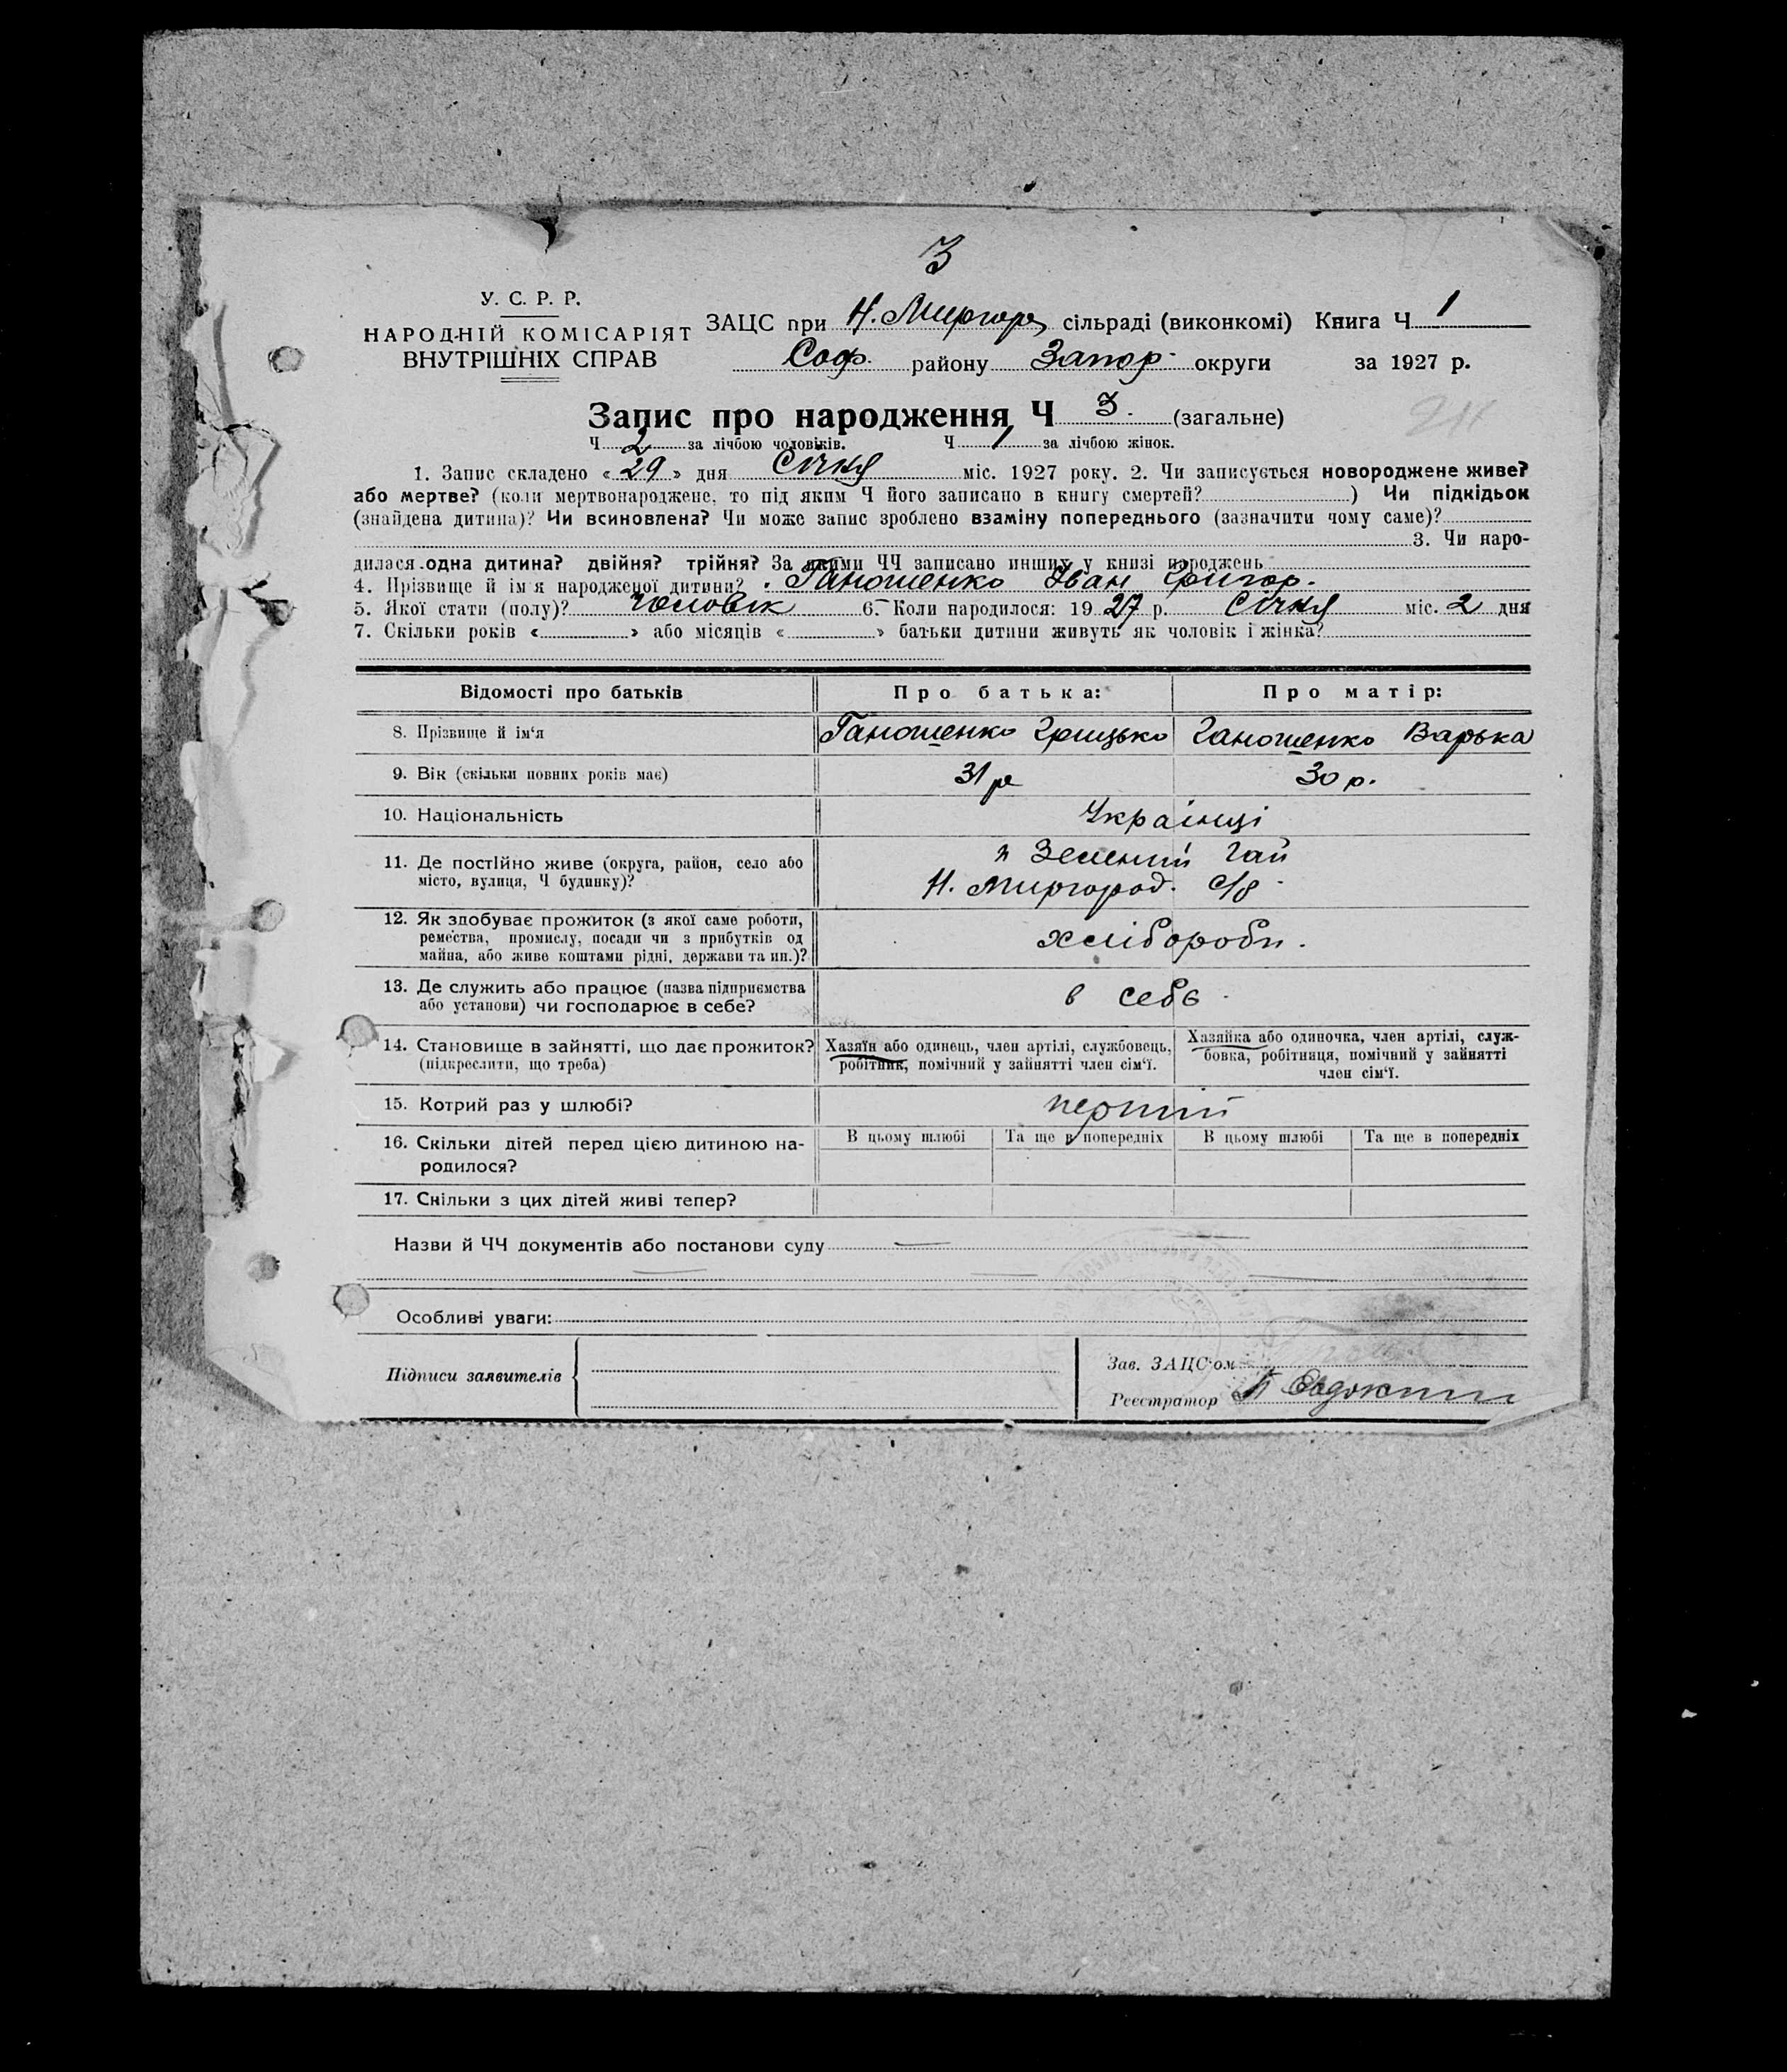 3
У. С. Р. Р.
НАРОДНІЙ КОМІСАРІЯТ
ВНУТРІШНІХ СПРАВ
ЗАЦС при Н. Миргород сільраді (виконкомі) Книга Ч 1
Соф. району Запор. округи за 1927 р.
Запис про народження Ч 3. (загальне)
Ч 2 за лічбою чоловіків. Ч 1 за лічбою жінок.
1. Запис складено «29» дня Січня міс. 1927 року. 2. Чи записується новороджене живе?
або мертве? (коли мертвонароджене, то під яким Ч його записано в книгу смертей? ) Чи підкідьок
(знайдена дитина)? Чи всиновлена? Чи може запис зроблено взаміну попереднього (зазначити чому саме)?
3. Чи наро-
дилася одна дитина? двійня? трійня? За якими ЧЧ записано инших у книзі народжень
4. Прізвище й ім'я народженої дитини? Ганошенко Іван Григор.
5. Якої стати (полу)? Чоловік 6. Коли народилося: 1927 р. Січня міс. 2 дня
7. Скільки років « » або місяців « » батьки дитини живуть як чоловік і жінка?
Відомості про батьків Про батька: Про матір:
8. Прізвище й ім'я Ганошенко Грицько Ганошенко Варька
9. Вік (скільки повних років має) 31 р 30 р.
10. Національність Українці
11. Де постійно живе (округа, район, село або
місто, вулиця, Ч будинку)?
п Зелений Гай
Н. Миргород. с/в
12. Як здобуває прожиток (з якої саме роботи,
ремества, промислу, посади чи з прибутків од
майна, або живе коштами рідні, держави та ин.)?
хлібороби.
13. Де служить або працює (назва підприємства
або установи) чи господарює в себе?
в себе
14. Становище в зайнятті, що дає прожиток?
(підкреслити, що треба)
Хазяїн або одинець, член артілі, службовець,
робітник, помічний у зайнятті член сім'ї.
Хазяйка або одиночка, член артілі, служ-
бовка, робітниця, помічний у зайнятті
член сім'ї.
15. Котрий раз у шлюбі? перший
16. Скільки дітей перед цією дитиною на-
родилося?
В цьому шлюбі Та ще в попередніх В цьому шлюбі Та ще в попередніх
17. Скільки з цих дітей живі тепер?
Назви й ЧЧ документів або постанови суду
Особливі уваги:
Підписи заявителів
Зав. ЗАЦС'ом
Реєстратор